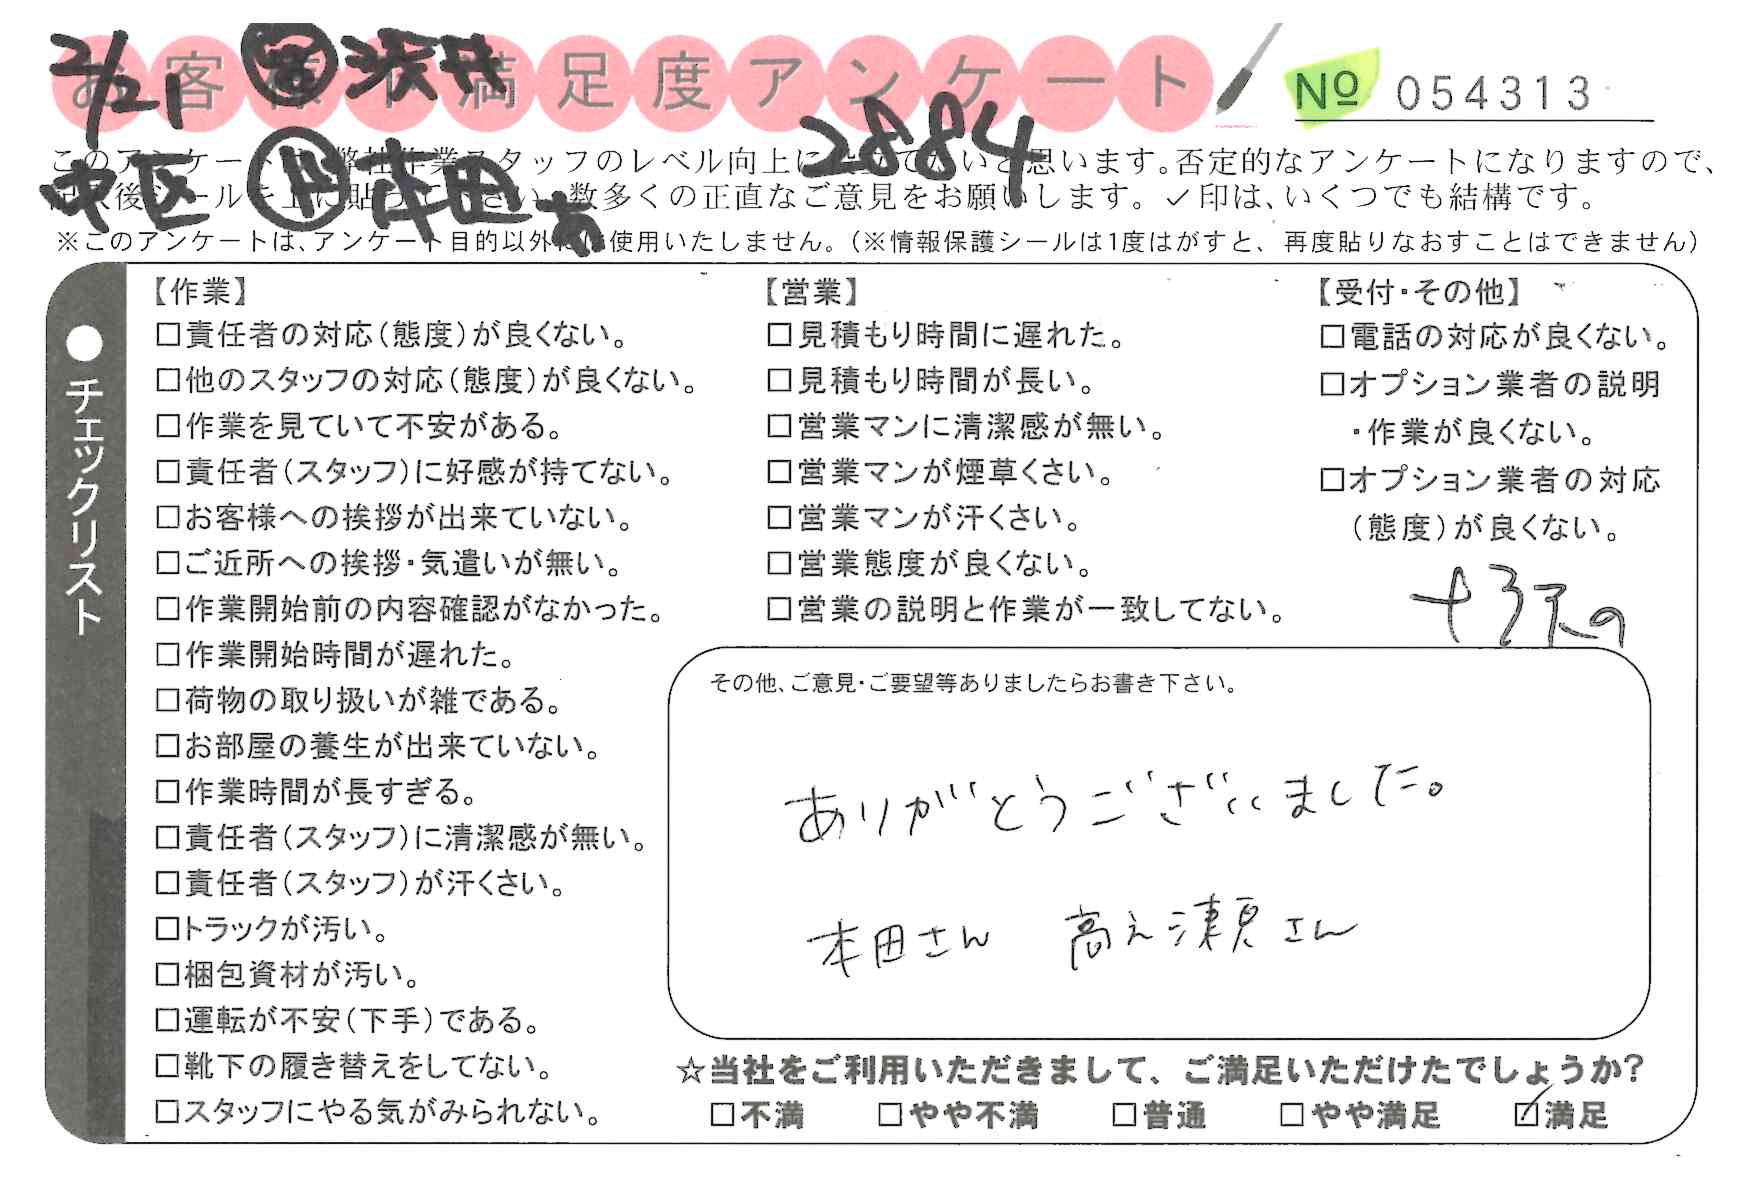 お客様不満足度アンケート
№ 054313
2/21 営 浜井
2884
中区 作 本田 あ
このアンケートは、弊社作業スタッフのレベル向上に役立てたいと思います。否定的なアンケートになりますので、
記入後シールを上に貼って下さい。数多くの正直なご意見をお願いします。✓印は、いくつでも結構です。
※このアンケートは、アンケート目的以外には使用いたしません。(※情報保護シールは1度はがすと、再度貼りなおすことはできません)
●チェックリスト
【作業】
□責任者の対応(態度)が良くない。
□他のスタッフの対応(態度)が良くない。
□作業を見ていて不安がある。
□責任者(スタッフ)に好感が持てない。
□お客様への挨拶が出来ていない。
□ご近所への挨拶・気遣いが無い。
□作業開始前の内容確認がなかった。
□作業開始時間が遅れた。
□荷物の取り扱いが雑である。
□お部屋の養生が出来ていない。
□作業時間が長すぎる。
□責任者(スタッフ)に清潔感が無い。
□責任者(スタッフ)が汗くさい。
□トラックが汚い。
□梱包資材が汚い。
□運転が不安(下手)である。
□靴下の履き替えをしてない。
□スタッフにやる気がみられない。
【営業】
□見積もり時間に遅れた。
□見積もり時間が長い。
□営業マンに清潔感が無い。
□営業マンが煙草くさい。
□営業マンが汗くさい。
□営業態度が良くない。
□営業の説明と作業が一致してない。
【受付・その他】
□電話の対応が良くない。
□オプション業者の説明
・作業が良くない。
□オプション業者の対応
(態度)が良くない。
その他、ご意見・ご要望等ありましたらお書き下さい。
ありがとうございました。
本田さん 高え津夏さん
☆当社をご利用いただきまして、ご満足いただけたでしょうか?
□不満 □やや不満 □普通 □やや満足 ☑満足